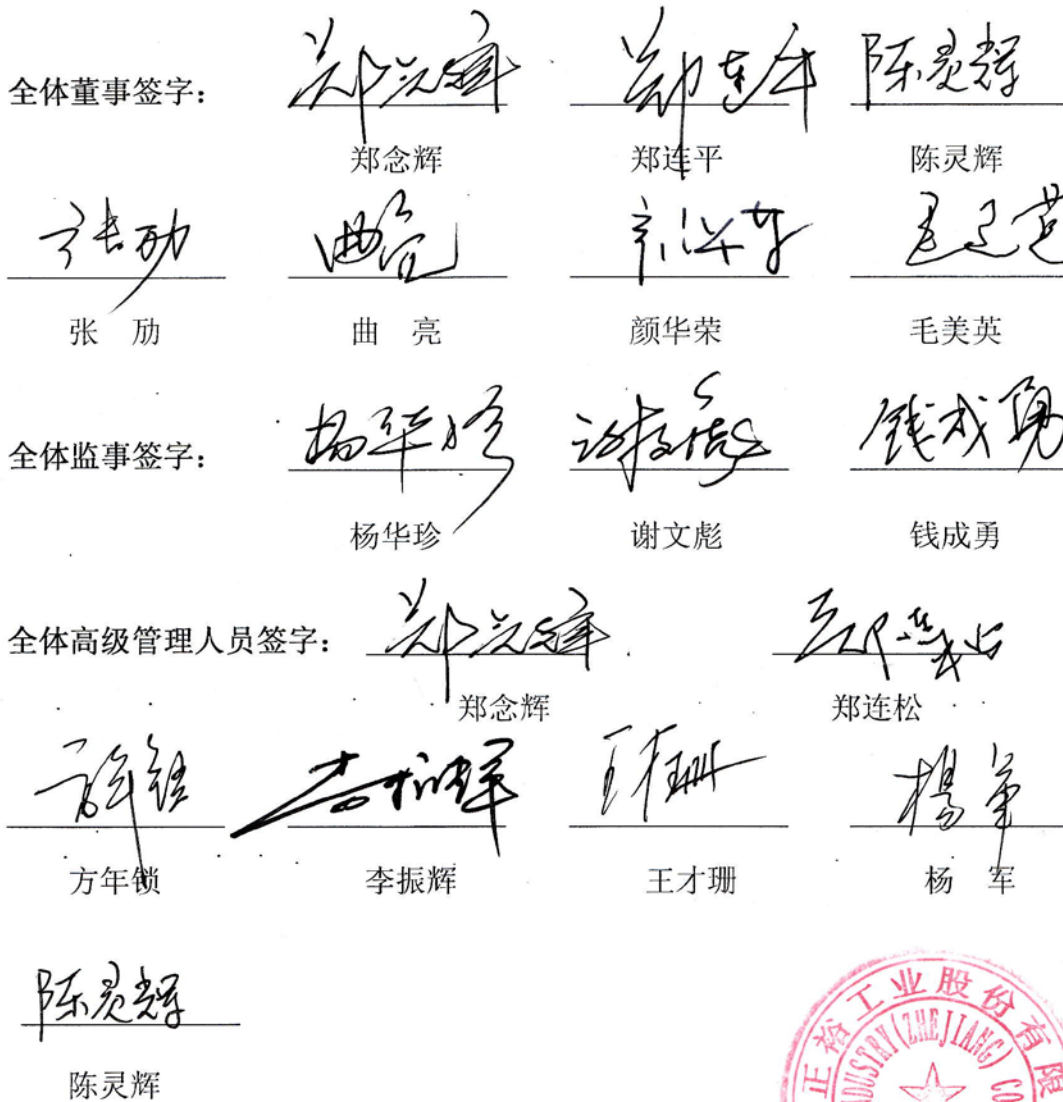 全体董事签字：
郑念辉 郑连平 陈灵辉
郑念辉 郑连平 陈灵辉
张劢 曲亮 颜华荣 毛美英
张 劢 曲 亮 颜华荣 毛美英
全体监事签字：
杨华珍 谢文彪 钱成勇
杨华珍 谢文彪 钱成勇
全体高级管理人员签字：
郑念辉 郑连松
郑念辉 郑连松
方年锁 李振辉 王才珊 杨军
方年锁 李振辉 王才珊 杨 军
陈灵辉
陈灵辉
正裕工业股份有限
INDUSTRY(ZHEJIANG) CO